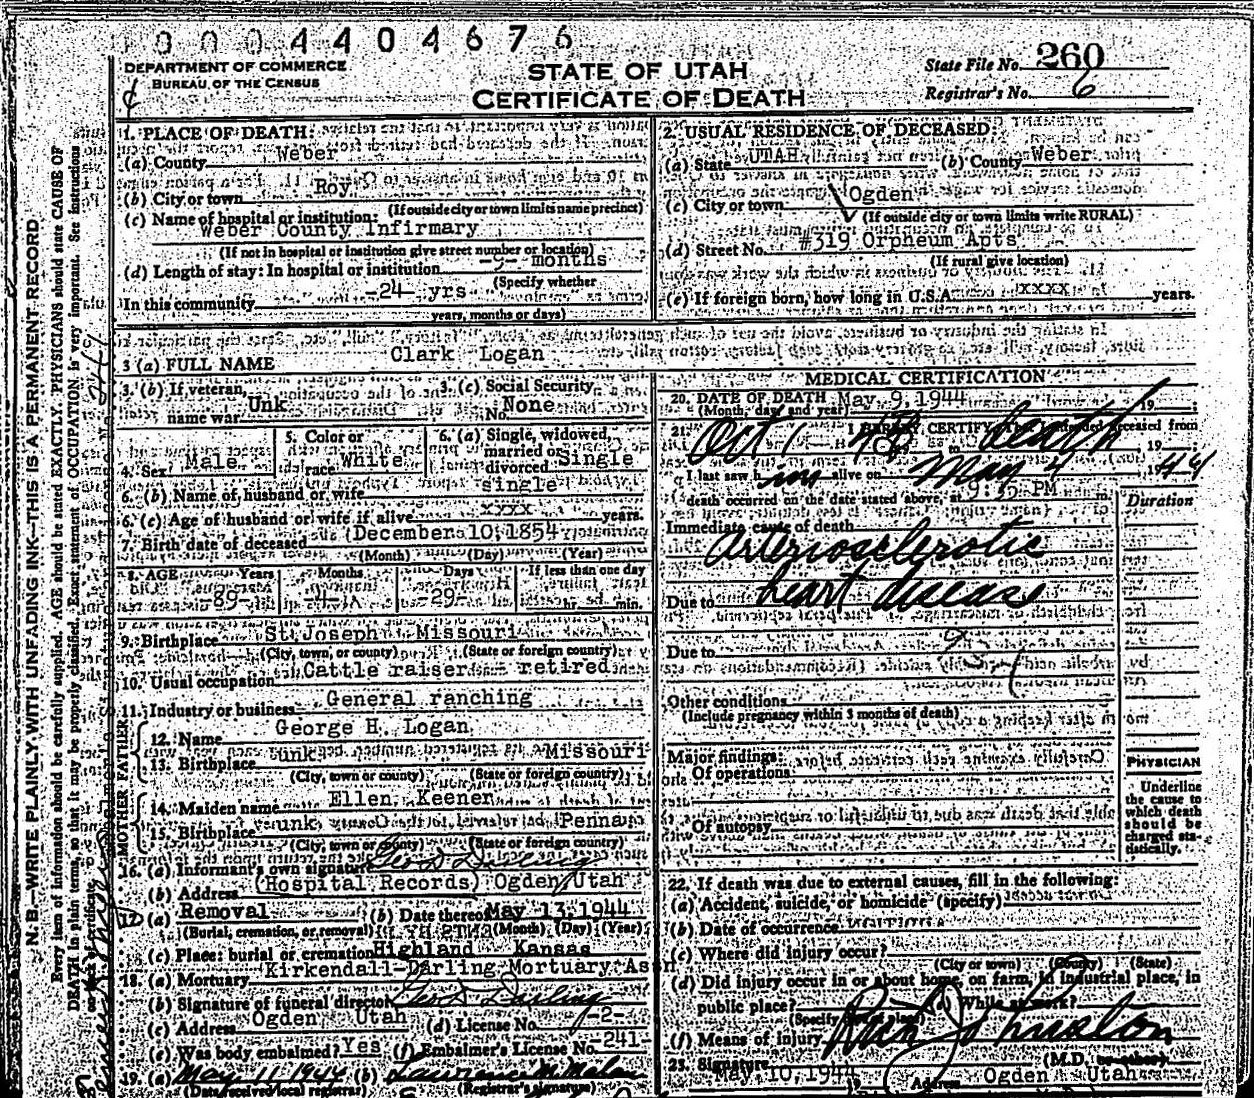 00004404676
DEPARTMENT OF COMMERCE
BUREAU OF THE CENSUS
STATE OF UTAH
CERTIFICATE OF DEATH
State File No. 260
Registrar's No. 6
N. B.—WRITE PLAINLY, WITH UNFADING INK—THIS IS A PERMANENT RECORD
Every item of information should be carefully supplied. AGE should be stated EXACTLY. PHYSICIANS should state CAUSE OF
DEATH in plain terms, so that it may be properly classified. Exact statement of OCCUPATION is very important. See instructions
on back of certificate.
1. PLACE OF DEATH:
(a) County Weber
(b) City or town Roy
(If outside city or town limits name precinct)
(c) Name of hospital or institution:
Weber County Infirmary
(If not in hospital or institution give street number or location)
(d) Length of stay: In hospital or institution months
(Specify whether
In this community -24- yrs
years, months or days)
2. USUAL RESIDENCE OF DECEASED:
(a) State UTAH (b) County Weber
(c) City or town Ogden
(If outside city or town limits write RURAL)
(d) Street No. #319 Orpheum Apts
(If rural give location)
(e) If foreign born, how long in U.S.A. xxxx years.
3 (a) FULL NAME Clark Logan
3. (b) If veteran, name war Unk
3. (c) Social Security No. None
4. Sex Male
5. Color or race White
6. (a) Single, widowed, married or divorced Single
6. (b) Name of husband or wife single
6. (c) Age of husband or wife if alive xxxx years.
7. Birth date of deceased December 10, 1854
(Month) (Day) (Year)
8. AGE Years Months Days If less than one day
-89- -4- -29- hr. min.
9. Birthplace St. Joseph Missouri
(City, town, or county) (State or foreign country)
10. Usual occupation Cattle raiser - retired
11. Industry or business General ranching
FATHER
12. Name George H. Logan
13. Birthplace unk Missouri
(City, town or county) (State or foreign country)
MOTHER
14. Maiden name Ellen Keener
15. Birthplace unk Penna
(City, town or county) (State or foreign country)
16. (a) Informant's own signature Geo D Darling
(b) Address (Hospital Records) Ogden, Utah
17. (a) Removal (b) Date thereof May 13, 1944
(Burial, cremation, or removal) (Month) (Day) (Year)
(c) Place: burial or cremation Highland Kansas
18. (a) Mortuary Kirkendall-Darling Mortuary Assn
(b) Signature of funeral director Geo D Darling
(c) Address Ogden Utah (d) License No. -2-
(e) Was body embalmed? Yes (f) Embalmer's License No. -241-
19. (a) May 11 1944 (b) Lawrence M Malan
(Date received local registrar) (Registrar's signature)
MEDICAL CERTIFICATION
20. DATE OF DEATH May 9, 1944 19
(Month, day and year)
21. I HEREBY CERTIFY, That I attended deceased from
Oct 1 43 to death 19
I last saw him alive on May 4 1944
death occurred on the date stated above, at 9:35 PM m.
Duration
Immediate cause of death
arteriosclerotic
heart disease
Due to
Due to
Other conditions
(Include pregnancy within 3 months of death)
Major findings:
Of operations
Of autopsy
PHYSICIAN
Underline
the cause to
which death
should be
charged sta-
tistically.
22. If death was due to external causes, fill in the following:
(a) Accident, suicide, or homicide (specify)
(b) Date of occurrence
(c) Where did injury occur?
(City or town) (County) (State)
(d) Did injury occur in or about home, on farm, in industrial place, in
public place? (e) While at work?
(Specify type of place)
(f) Means of injury
23. Signature (M.D. or other)
May 10, 1944 Address Ogden Utah